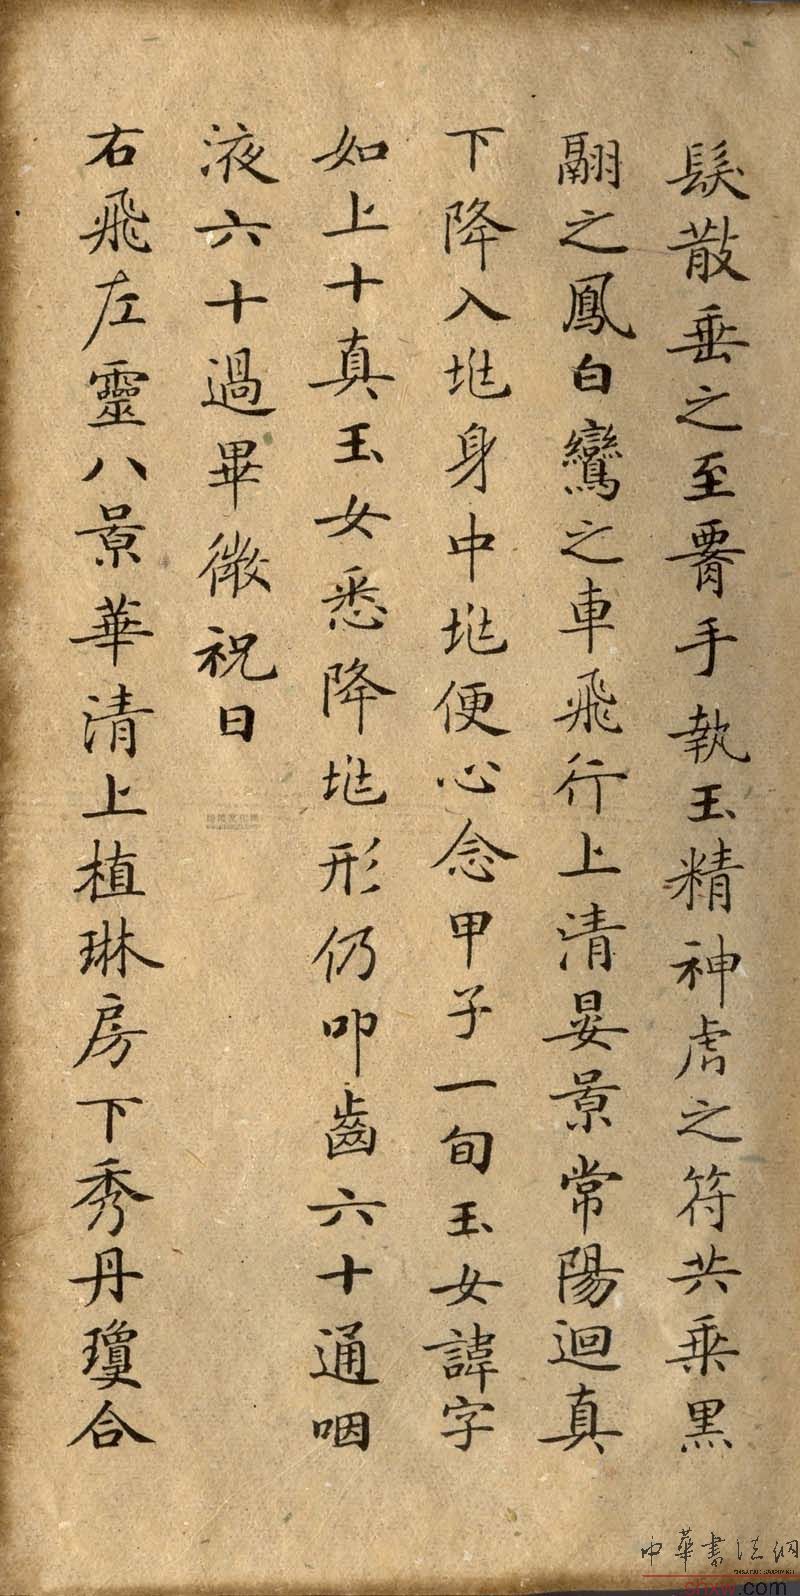 髮散垂之至䨱手執玉精神虎之符共乗黒
翮之鳳白鸞之車飛行上清晏景常陽迴真
下降入𡉏身中𡉏便心念甲子一旬玉女諱字
如上十真玉女悉降𡉏形仍叩齒六十通咽
液六十過畢微祝曰
右飛左靈八景華清上植琳房下秀丹瓊合
中華書法網